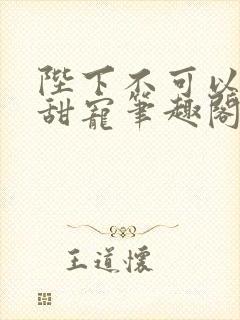 陛下不可以
甜寵筆趣閣
王道懷